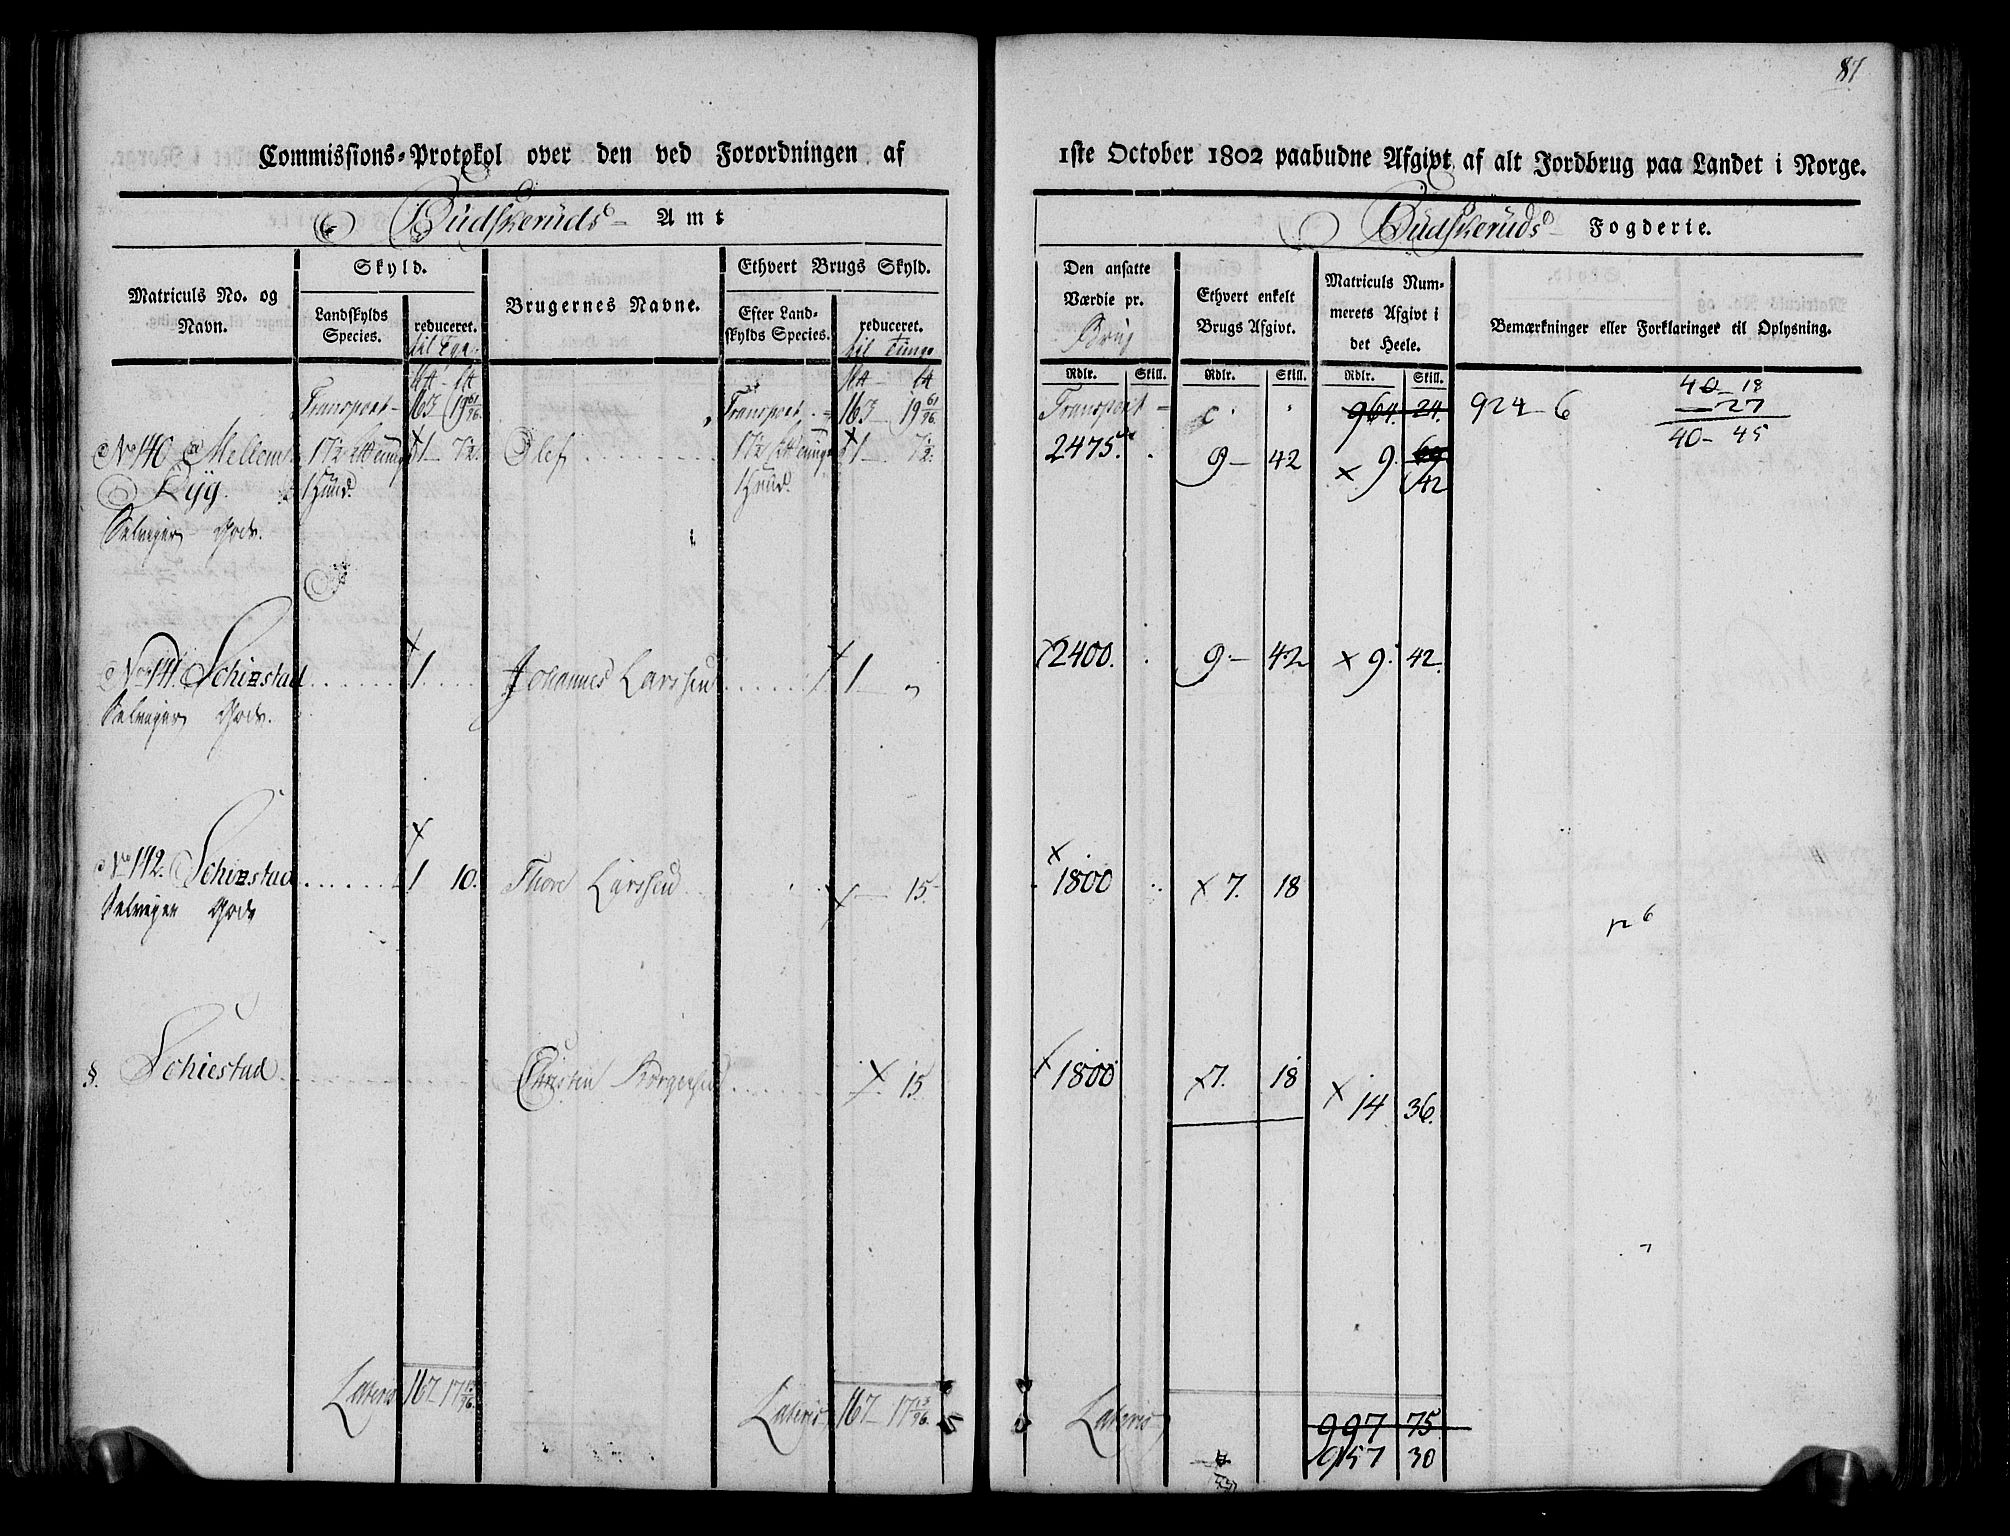 87.
Commissions-Protokol over den ved Forordningen af
1ste October 1802 paabudne Afgivt af alt Jordbrug paa Landet i Norge.
Budskeruds Amt
Budskeruds Fogderie.
Matriculs No. og Navn.
Skyld.
Landskylds Species.
reduceret.
Brugernes Navne.
Ethvert Brugs Skyld.
Efter Landskylds Species.
reduceret.
til Tunge
Den ansatte Værdie pr. Brug
Ethvert enkelt Brugs Afgivt.
Matriculs Nummerets Afgivt i det Heele.
Bemærkninger eller Forklaringer til Oplysning.
Rdlr. Skill. Rdlr. Skill. Rdlr. Skill.
Transport 163 19 61/96 Transport 163 19 61/96 Transport 964. 24. 924-6
40-18
27
40-45
No 140 Mellem Ryg. 1 Hund. 1 7½ Olef 1 Hund. 1 7½ 2475. 9-42 9. 42
Selveyer Gods.
No 141. Schiestad 1 Johannes Larssen 1 2400. 9-42 9. 42
Selveyer Gods.
No 142. Schiestad 1 10. Thore Larssen 15 1800 7. 18
Selveyer Gods
126
§. Schiestad Christen Borgersen 15. 1800 7. 18 14 36.
Lateris 167-17 13/96. Lateris 167-17 13/96. Lateris 997 75
957 30